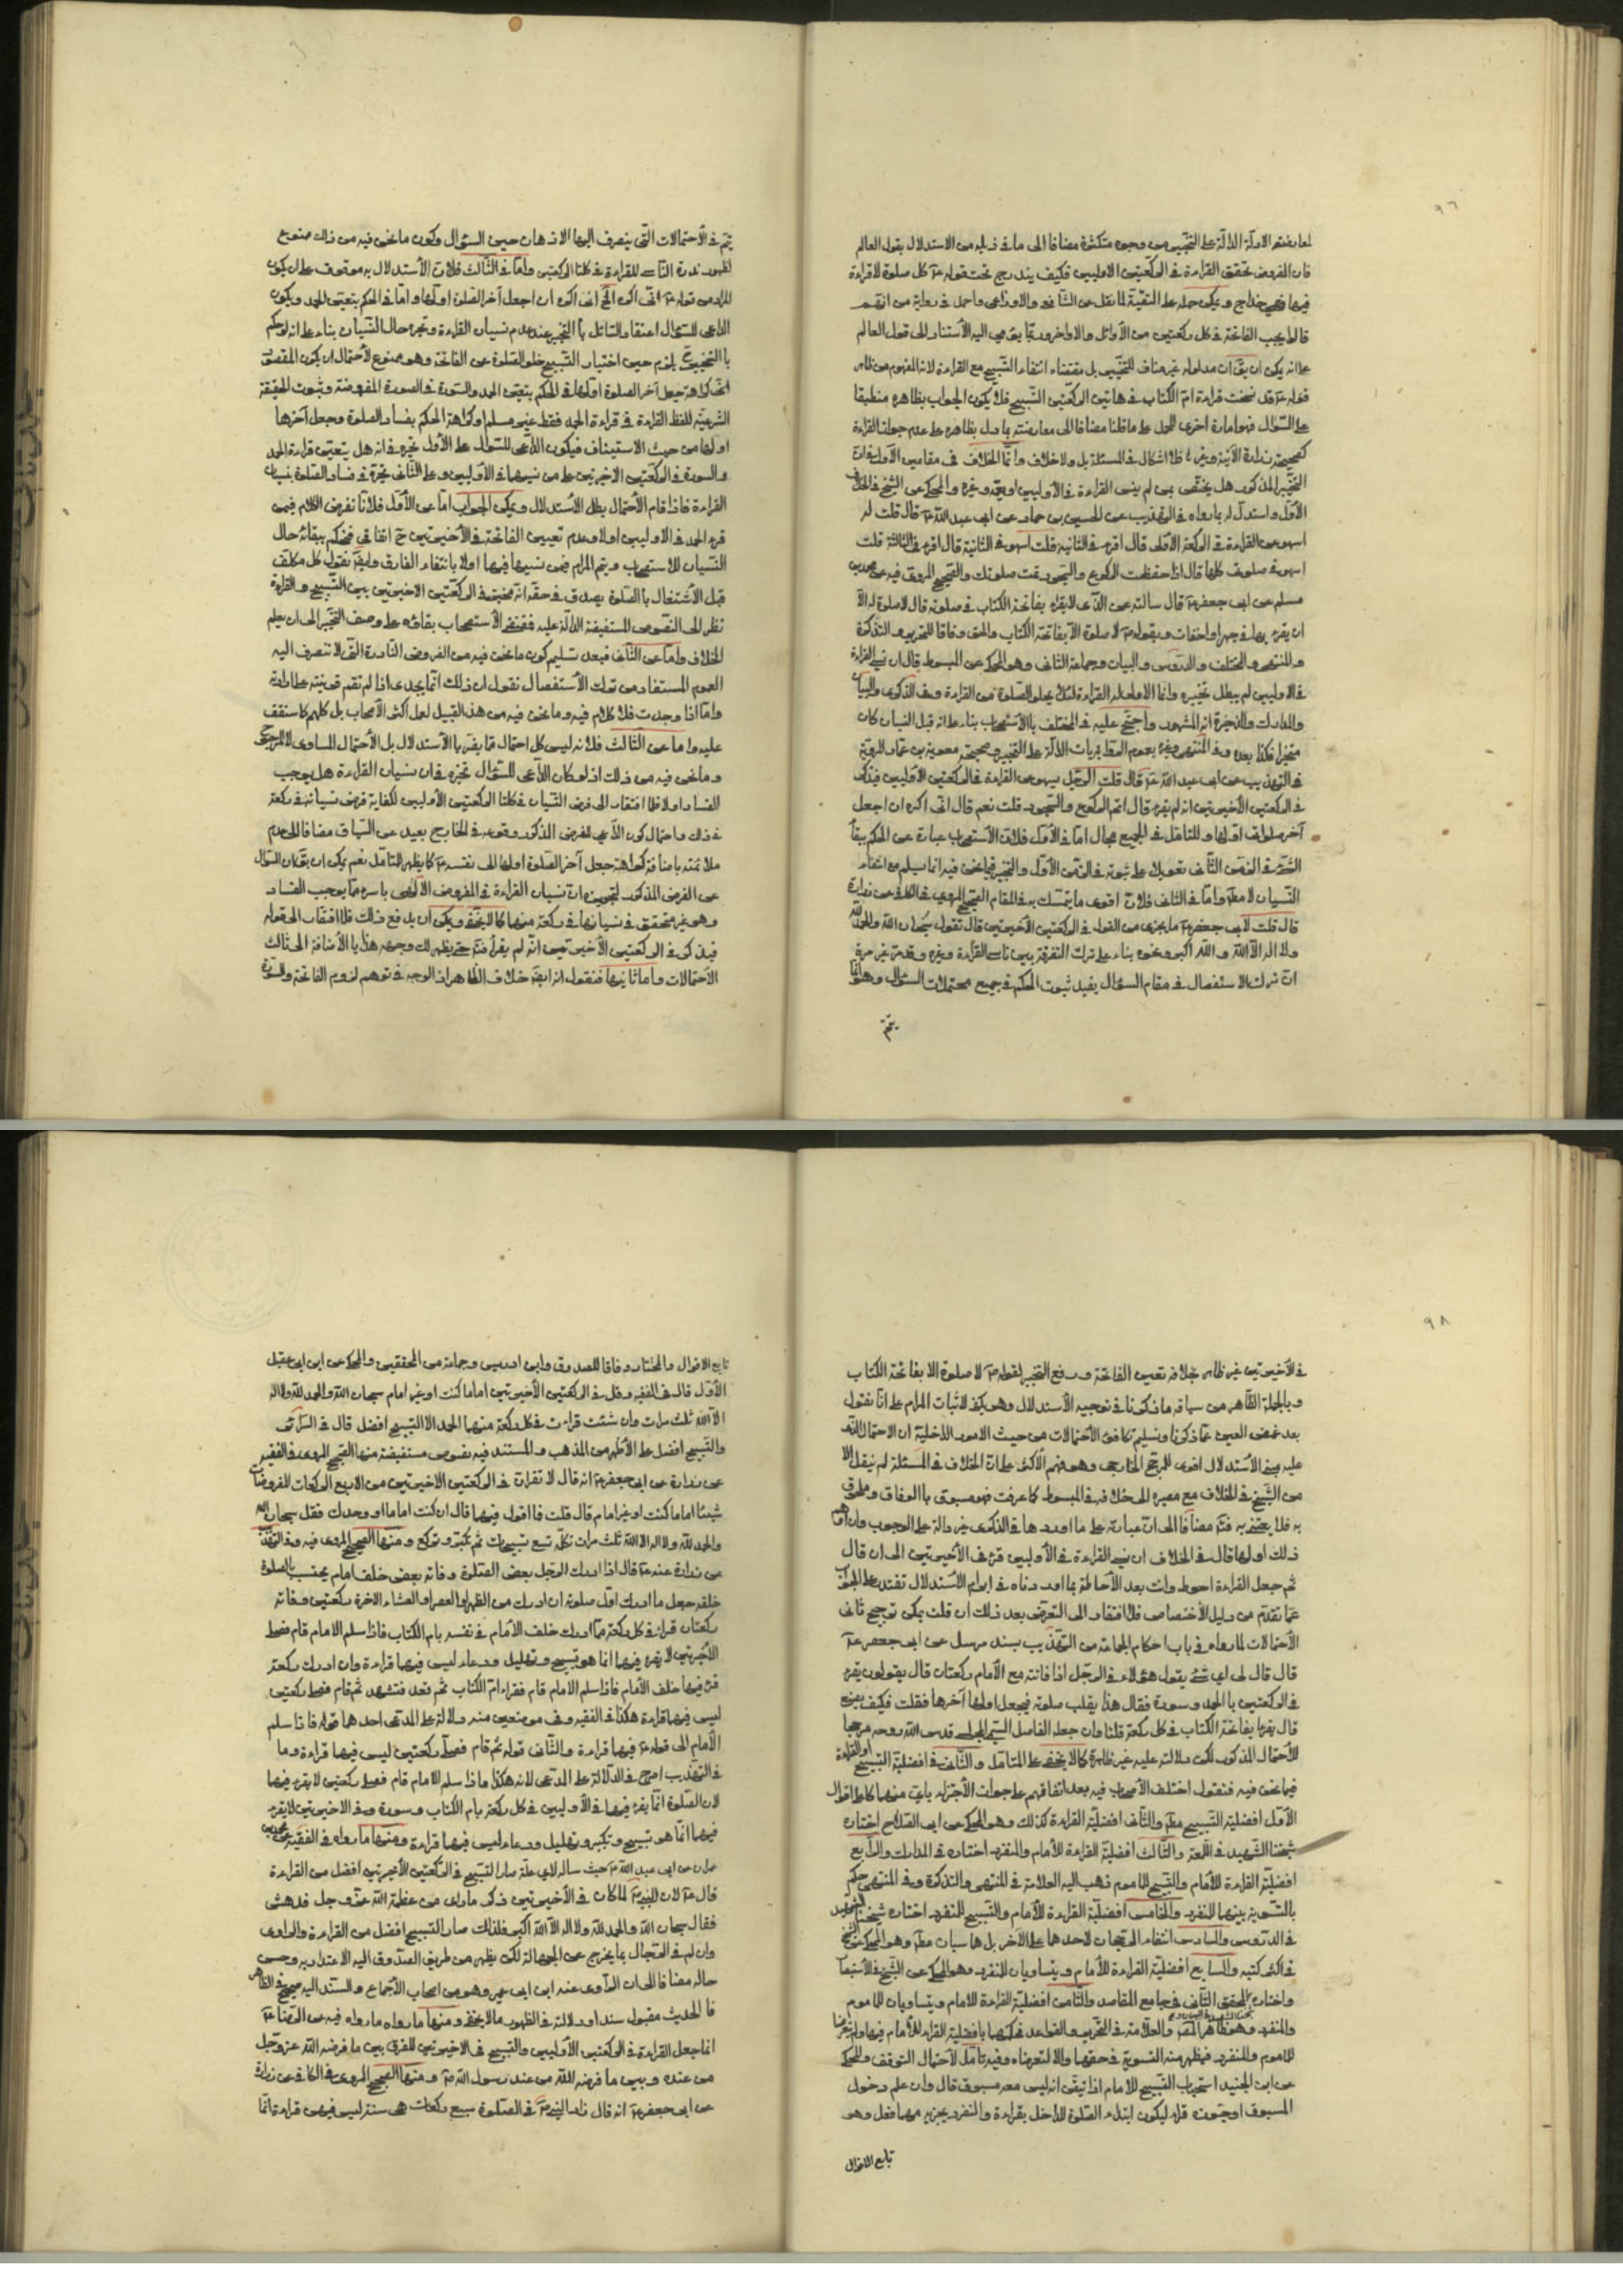 ٩٦
لمعارضتم الادلة الدالة على التخيير من وجوه متكثرة مضافا الى ما في ذيله من الاستدلال بقول العالم
فان المفروض تحقق القراءة في الركعتين الاوليين فكيف يندرج تحت قوله ع كل صلوة لا قراءة
فيها فهي خداج ويمكن حمله على التقية لما نقل عن الشافعى والاوزاعى واحمد في رواية من انهم
قالوا يجب الفاتحة في كل ركعتين من الاوائل والاواخر وربما يؤمى اليه الأستناد الى قول العالم
على انه يمكن ان يقال ان مدلوله غير مناف للتخيير بل مقتضاه انتفاء التسبيح مع القراءة لانه المفهوم من ظاهر
قوله ع قد نسخت قراءة ام الكتاب في هاتين الركعتين التسبيح فلا يكون الجواب بظاهره منطبقا
على السؤال فهو امارة اخرى للحمل على ما قلنا مضافا الى معارضته بما دل بظاهره على عدم جواز القراءة
كصحيحة زرارة الآتية وغيرها فلا اشكال في المسئلة بل ولا خلاف وانما الخلاف في مقامين الأول ان
التخيير المذكور هل يختص بمن لم ينس القراءة في الأوليين او يعمه وغيره والمحكى عن الشيخ في الخلاف
الأول واستدل له بما رواه في التهذيب عن الحسين بن حماد عن ابى عبد الله ع قال قلت له
اسهو عن القراءة في الركعة الاولى قال اقرء في الثانية قلت اسهو في الثانية قال اقرء في الثالثة قلت
اسهو في صلوتى كلها قال اذا حفظت الركوع والسجود تمت صلوتك والصحيح المروى فيه عن محمد بن
مسلم عن ابى جعفر ع قال سالته عن الذى لا يقرء بفاتحة الكتاب في صلوته قال لا صلوة له الا
ان يقرء بها في جهر او اخفات وبقوله ع لا صلوة الا بفاتحة الكتاب والحق وفاقا للتحرير والتذكرة
والمنتهى والمختلف والدروس والبيان وجماعة الثانى وهو المحكى عن المبسوط قال ان نسى القراءة
في الاوليين لم يبطل تخييره وانما الاولى له القراءة لئلا يخلو الصلوة من القراءة وفى الذكرى والبيان
والمدارك والذخيرة انه المشهور واحتج عليه في المختلف بالاستصحاب بناء على انه قبل النسيان كان
مخيرا فكذا بعده وفى المنتهى وغيره بعموم الروايات الدالة على التخيير وصحيحة معوية بن عمار المروية
في التهذيب عن ابى عبد الله ع قال قلت الرجل يسهو عن القراءة في الركعتين الأوليين فيذكر
في الركعتين الأخيرتين انه لم يقرء قال اتم الركوع والسجود قلت نعم قال انى اكره ان اجعل
آخر صلوتى اولها وللتامل في الجميع مجال اما في الأول فلان الأستصحاب عبارة عن الحكم ببقاء
الشئ في الزمن الثانى تعويلا على ثبوته في الزمن الأول والتخيير فيما نحن فيه انما يسلم مع انتفاء
النسيان لا مطم واما في الثانى فلان اقوى ما يتمسك به في المقام الصحيح المروى في الكافى عن زرارة
قال قلت لابى جعفر ع ما يجزى من القول في الركعتين الأخيرتين قال تقول سبحان الله والحمد لله
ولا اله الا الله والله اكبر ونحوه بناء على ترك التفرقة بين ناسى القراءة وغيره وقد مر غير مرة
ان ترك الاستفصال في مقام السؤال يفيد ثبوت الحكم في جميع محتملات السؤال وهو انما
يتم
يتم في الأحتمالات التى ينصرف اليها الاذهان حين السؤال وكون ما نحن فيه من ذلك ممنوع
لظهور ندرة الناسى للقراءة في كلتا الركعتين واما في الثالث فلان الأستدلال به موقوف على ان يكون
المراد من قوله ع انى اكره الخ انى اكره ان اجعل آخر الصلوة اولها واما في الحكم بتعين الحمد ويكون
الداعى للسؤال اعتقاد السائل بالتخيير عند عدم نسيان القراءة وتحيره حال النسيان بناء على انه لو حكم
بالتخيير ح يلزم حين اختيار التسبيح خلو الصلوة عن الفاتحة وهو ممنوع لأحتمال ان يكون المقصود
انى كراهة جعل آخر الصلوة اولها في الحكم بتعين الحمد والسورة في الصورة المفروضة وثبوت الحقيقة
الشرعية للفظ القراءة في قراءة الحمد فقط غير مسلم او كراهة الحكم بفساد الصلوة وجعل آخرها
اولها من حيث الاستيناف فيكون الداعى للسؤال على الأول تحيره في انه هل يتعين قراءة الحمد
والسورة في الركعتين الاخيرتين على من نسيهما في الأوليين وعلى الثانى تحيره في فساد الصلوة بنسيان
القراءة فاذا قام الأحتمال بطل الأستدلال ويمكن الجواب اما عن الأول فلانا نفرض الكلام فيمن
قرء الحمد في الاوليين اولا وعدم تعيين الفاتحة في الأخيرتين ح اتفاقى فنحكم ببقائه حال
النسيان للاستصحاب ويتم المرام فيمن نسيها فيهما اولا بانتفاء الفارق وايضا نقول كل مكلف
قبل الأشتغال بالصلوة يصدق في حقه انه مخير في الركعتين الاخيرتين بين التسبيح والقراءة
نظرا الى النصوص المستفيضة الدالة عليه فمقتضى الأستصحاب بقاؤه على وصف التخيير الى ان يعلم
الخلاف واما عن الثانى فبعد تسليم كون ما نحن فيه من الفروض النادرة التى لا تنصرف اليه
العموم المستفاد من ترك الأستفصال نقول ان ذلك انما يجدى اذا لم تقم قرينة على ارادة
واما اذا وجدت فلا كلام فيه وما نحن فيه من هذا القبيل لعمل اكثر الأصحاب بل كلهم كما ستقف
عليه واما عن الثالث فلانه ليس كل احتمال مما يضر بالأستدلال بل الأحتمال المساوى لا المرجوح
وما نحن فيه من ذلك اذ لو كان الداعى للسؤال تحيره في ان نسيان القراءة هل يوجب
الفساد اولا فلا افتقار الى فرض النسيان في كلتا الركعتين الأوليين لكفاية فرض نسيانه في ركعة
في ذلك واحتمال كون الداعى للفرض المذكور وقوعه في الخارج بعيد عن السياق مضافا الى عدم
ملائمته باضافة كراهة جعل آخر الصلوة اولها الى نفسه ع كما يظهر للتامل نعم يمكن ان يقال ان السؤال
عن الفرض المذكور لتجويزه ان نسيان القراءة في المفروض الاولى باسره مما يوجب الفساد
وهو غير متحقق في نسيانها في ركعة منهما كما لا يخفى ويمكن ان يدفع ذلك فلا افتقار الى قوله
فيذكر في الركعتين الأخيرتين انه لم يقرأ فتم حتى يظهر لك وجهه هذا بالأضافة الى ثالث
الأحتمالات واما ثانيها فنقول انه ايضا خلاف الظاهر اذ الوجه في توهم لزوم الفاتحة والسورة
٩٨
في الأخيرتين غير ظاهر بخلاف تعيين الفاتحة ورفع التخيير لقوله ع لا صلوة الا بفاتحة الكتاب
وبالجملة الظاهر من سياقه ما ذكرنا في توجيه الأستدلال وهو يكفى لاثبات المرام على انا نقول
بعد غمض العين عما ذكرنا وتسليم تكافئ الأحتمالات من حيث الامور الداخلية ان الاحتمال الذى
عليه مبنى الأستدلال اقوى للمرجح الخارجى وهو فهم الأكثر على ان الخلاف في المسئلة لم ينقل الا
من الشيخ في الخلاف مع مصيره الى خلافه في المبسوط كما عرفت فهو مسبوق بالوفاق وملحوق
به فلا يعتنى به فتم مضافا الى ان عبارته على ما اوردها في الذكرى غير دالة على الوجوب وان اوهم
ذلك اولها قال في الخلاف ان نسى القراءة في الأوليين قرء في الأخيرتين الى ان قال
ثم جعل القراءة احوط وانت بعد الأحاطة بما اوردناه في ابرام الأستدلال تقتدر على الجواب
عما تقدم من دليل الأختصاص فلا افتقار الى التعرض بعد ذلك ان قلت يمكن ترجيح ثانى
الأحتمالات لما رواه في باب احكام الجماعة من التهذيب بسند مرسل عن ابى جعفر ع
قال قال لى اى شئ يقول هؤلاء في الرجل اذا فاته مع الأمام ركعتان قال يقولون يقرء
في الركعتين بالحمد وسورة فقال هذا يقلب صلوته فيجعل اولها آخرها فقلت فكيف يصنع
قال يقرء بفاتحة الكتاب في كل ركعة قلنا وان جعله الفاضل السمى المجلسى قدس الله روحه مرجحا
للأحتمال المذكور لكن دلالته عليه غير ظاهرة كما لا يخفى على المتامل والثانى في افضلية التسبيح او القراءة
فيما نحن فيه فنقول اختلف الأصحاب فيه بعد اتفاقهم على جواز الأجتزاء باى منهما كان على اقوال
الأول افضلية التسبيح مطم والثانى افضلية القراءة كذلك وهو المحكى عن ابى الصلاح اختاره
شيخنا الشهيد في اللمعة والثالث افضلية القراءة للأمام والمنفرد اختاره في المدارك والرابع
افضلية القراءة للأمام والتسبيح للماموم ذهب اليه العلامة في المنتهى والتذكرة وفى المنتهى حكم
بالتسوية بينهما للمنفرد والخامس افضلية القراءة للأمام والتسبيح للمنفرد اختاره شيخنا الشهيد
في الدروس والسادس انتفاء الرجحان لاحدهما على الآخر بل هما سيان مطم وهو المحكى عن الشيخ
في اكثر كتبه والسابع افضلية القراءة للأمام ويتساويان للمنفرد وهو المحكى عن الشيخ في الأستبصار
واختاره المحقق الثانى في جامع المقاصد والثامن افضلية القراءة للامام ويتساويان للماموم
والمنفرد وهو ظاهر المصنف والعلامة في التحرير والقواعد لحكمهما بافضلية القراءة للأمام فيهما ولم يتعرضا
للماموم والمنفرد فيظهر منه التسوية في حقهما والا لتعرضاه وفيه تامل لأحتمال التوقف والمحكى
عن ابن الجنيد استحباب التسبيح للامام اذا تيقن انه ليس معه مسبوق قال وان علم دخول
المسبوق او جوزه قرء ليكون ابتداء الصلوة للداخل بقراءة والمنفرد يجزيه مهما فعل وهو
تابع الاقوال
تابع الاقوال والمختار وفاقا للصدوق وابن ادريس وجماعة من المحققين والمحكى عن ابن ابى عقيل
الأول قال في الفقيه وقل في الركعتين الأخيرتين اماما كنت او غير امام سبحان الله والحمد لله ولا اله
الا الله ثلث مرات وان شئت قرأت في كل ركعة منهما الحمد الا التسبيح افضل قال في السرائر
والتسبيح افضل على الأظهر من المذهب والمستند فيه نصوص مستفيضة منها الصحيح المروى في الفقيه
عن زرارة عن ابى جعفر ع انه قال لا تقرأن في الركعتين الاخيرتين من الاربع الركعات المفروضات
شيئا اماما كنت او غير امام قال قلت فما اقول فيهما قال ان كنت اماما او وحدك فقل سبحان الله
والحمد لله ولا اله الا الله ثلث مرات تكمله تسع تسبيحات ثم تكبر وتركع ومنها الصحيح المروى فيه وفى التهذيب
عن زرارة عنه ع قال اذا ادرك الرجل بعض الصلوة وفاته بعض خلف امام يحتسب بالصلوة
خلفه جعل ما ادرك اول صلوته ان ادرك من الظهر او العصر او العشاء الاخرة ركعتين وفاته
ركعتان قرأ في كل ركعة مما ادرك خلف الأمام في نفسه بام الكتاب فاذا سلم الامام قام فصلى
الأخيرتين لا يقرء فيهما انما هو تسبيح وتهليل ودعاء ليس فيهما قراءة وان ادرك ركعة
قرء فيها خلف الأمام فاذا سلم الامام قام فقرأ ام الكتاب ثم قعد فتشهد ثم قام فصلى ركعتين
ليس فيهما قراءة هكذا في الفقيه وفى موضعين منه دلالة على المدعى احدهما قوله فاذا سلم
الأمام الى قوله ع فيهما قراءة والثانى قوله ثم قام فصلى ركعتين ليس فيهما قراءة وما
في التهذيب اصرح في الدلالة على المدعى لانه هكذا فاذا سلم الامام قام فصلى ركعتين لا يقرء فيهما
لان الصلوة انما يقرء فيها في الأوليين في كل ركعة بام الكتاب وسورة وفى الاخيرتين لا يقرء
فيهما انما هو تسبيح وتكبير وتهليل ودعاء ليس فيهما قراءة ومنها ما رواه في الفقيه عن محمد بن
عمران عن ابى عبد الله ع حيث ساله لاى علة صار التسبيح في الركعتين الأخيرتين افضل من القراءة
قال ع لان النبى ص لما كان في الأخيرتين ذكر ما راى من عظمة الله عز وجل فدهش
فقال سبحان الله والحمد لله ولا اله الا الله والله اكبر فلذلك صار التسبيح افضل من القراءة والراوى
وان لم في الرجال بما يخرج عن الجهالة لكن يظهر من طريق الصدوق اليه الاعتداد به وحسن
حاله مضافا الى ان الراوى عنه ابن ابى عمير وهو من اصحاب الأجماع والسند اليه صحيح في الظاهر
فالحديث مقبول سندا ودلالته في الظهور مما لا يخفى ومنها ما رواه فيه عن الرضا ع
انما جعل القراءة في الركعتين الأوليين والتسبيح في الاخيرتين للفرق بين ما فرضه الله عز وجل
من عنده وبين ما فرضه الله من عند رسول الله ص ومنها الصحيح المروى في الكافى عن زرارة
عن ابى جعفر ع انه قال زاد النبى ص في الصلوة سبع ركعات هى سنة ليس فيهن قراءة انما